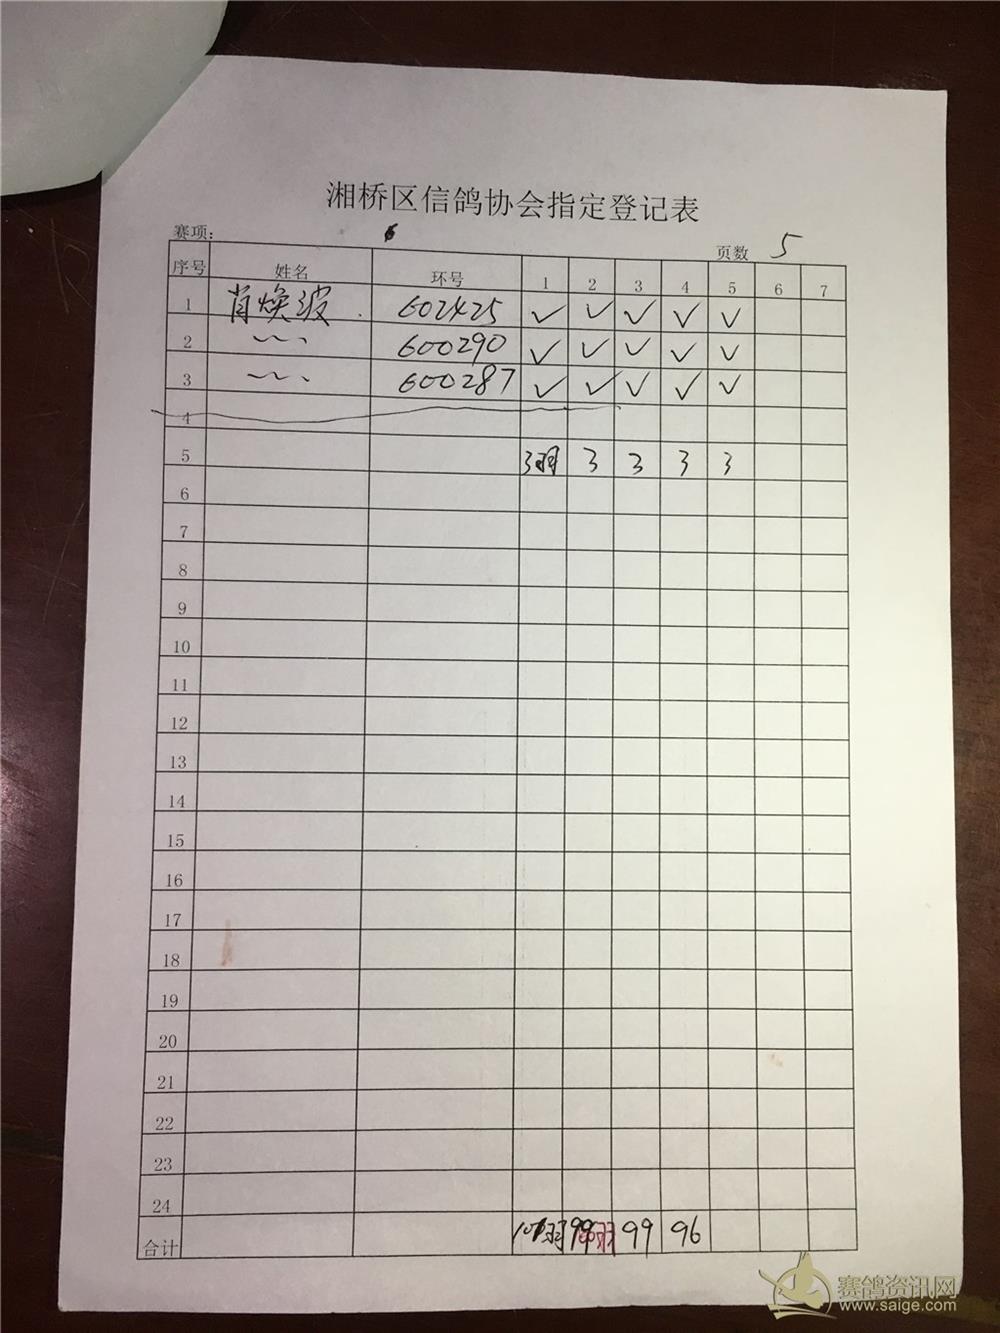 湘桥区信鸽协会指定登记表
赛项： 页数 5
序号 姓名 环号 1 2 3 4 5 6 7
1 肖焕波 602425 ✓ ✓ ✓ ✓ ✓
2 600290 ✓ ✓ ✓ ✓ ✓
3 600287 ✓ ✓ ✓ ✓ ✓
4
5 3羽 3 3 3 3
6
7
8
9
10
11
12
13
14
15
16
17
18
19
20
21
22
23
24
合计 99 96
赛鸽资讯网
www.saige.com